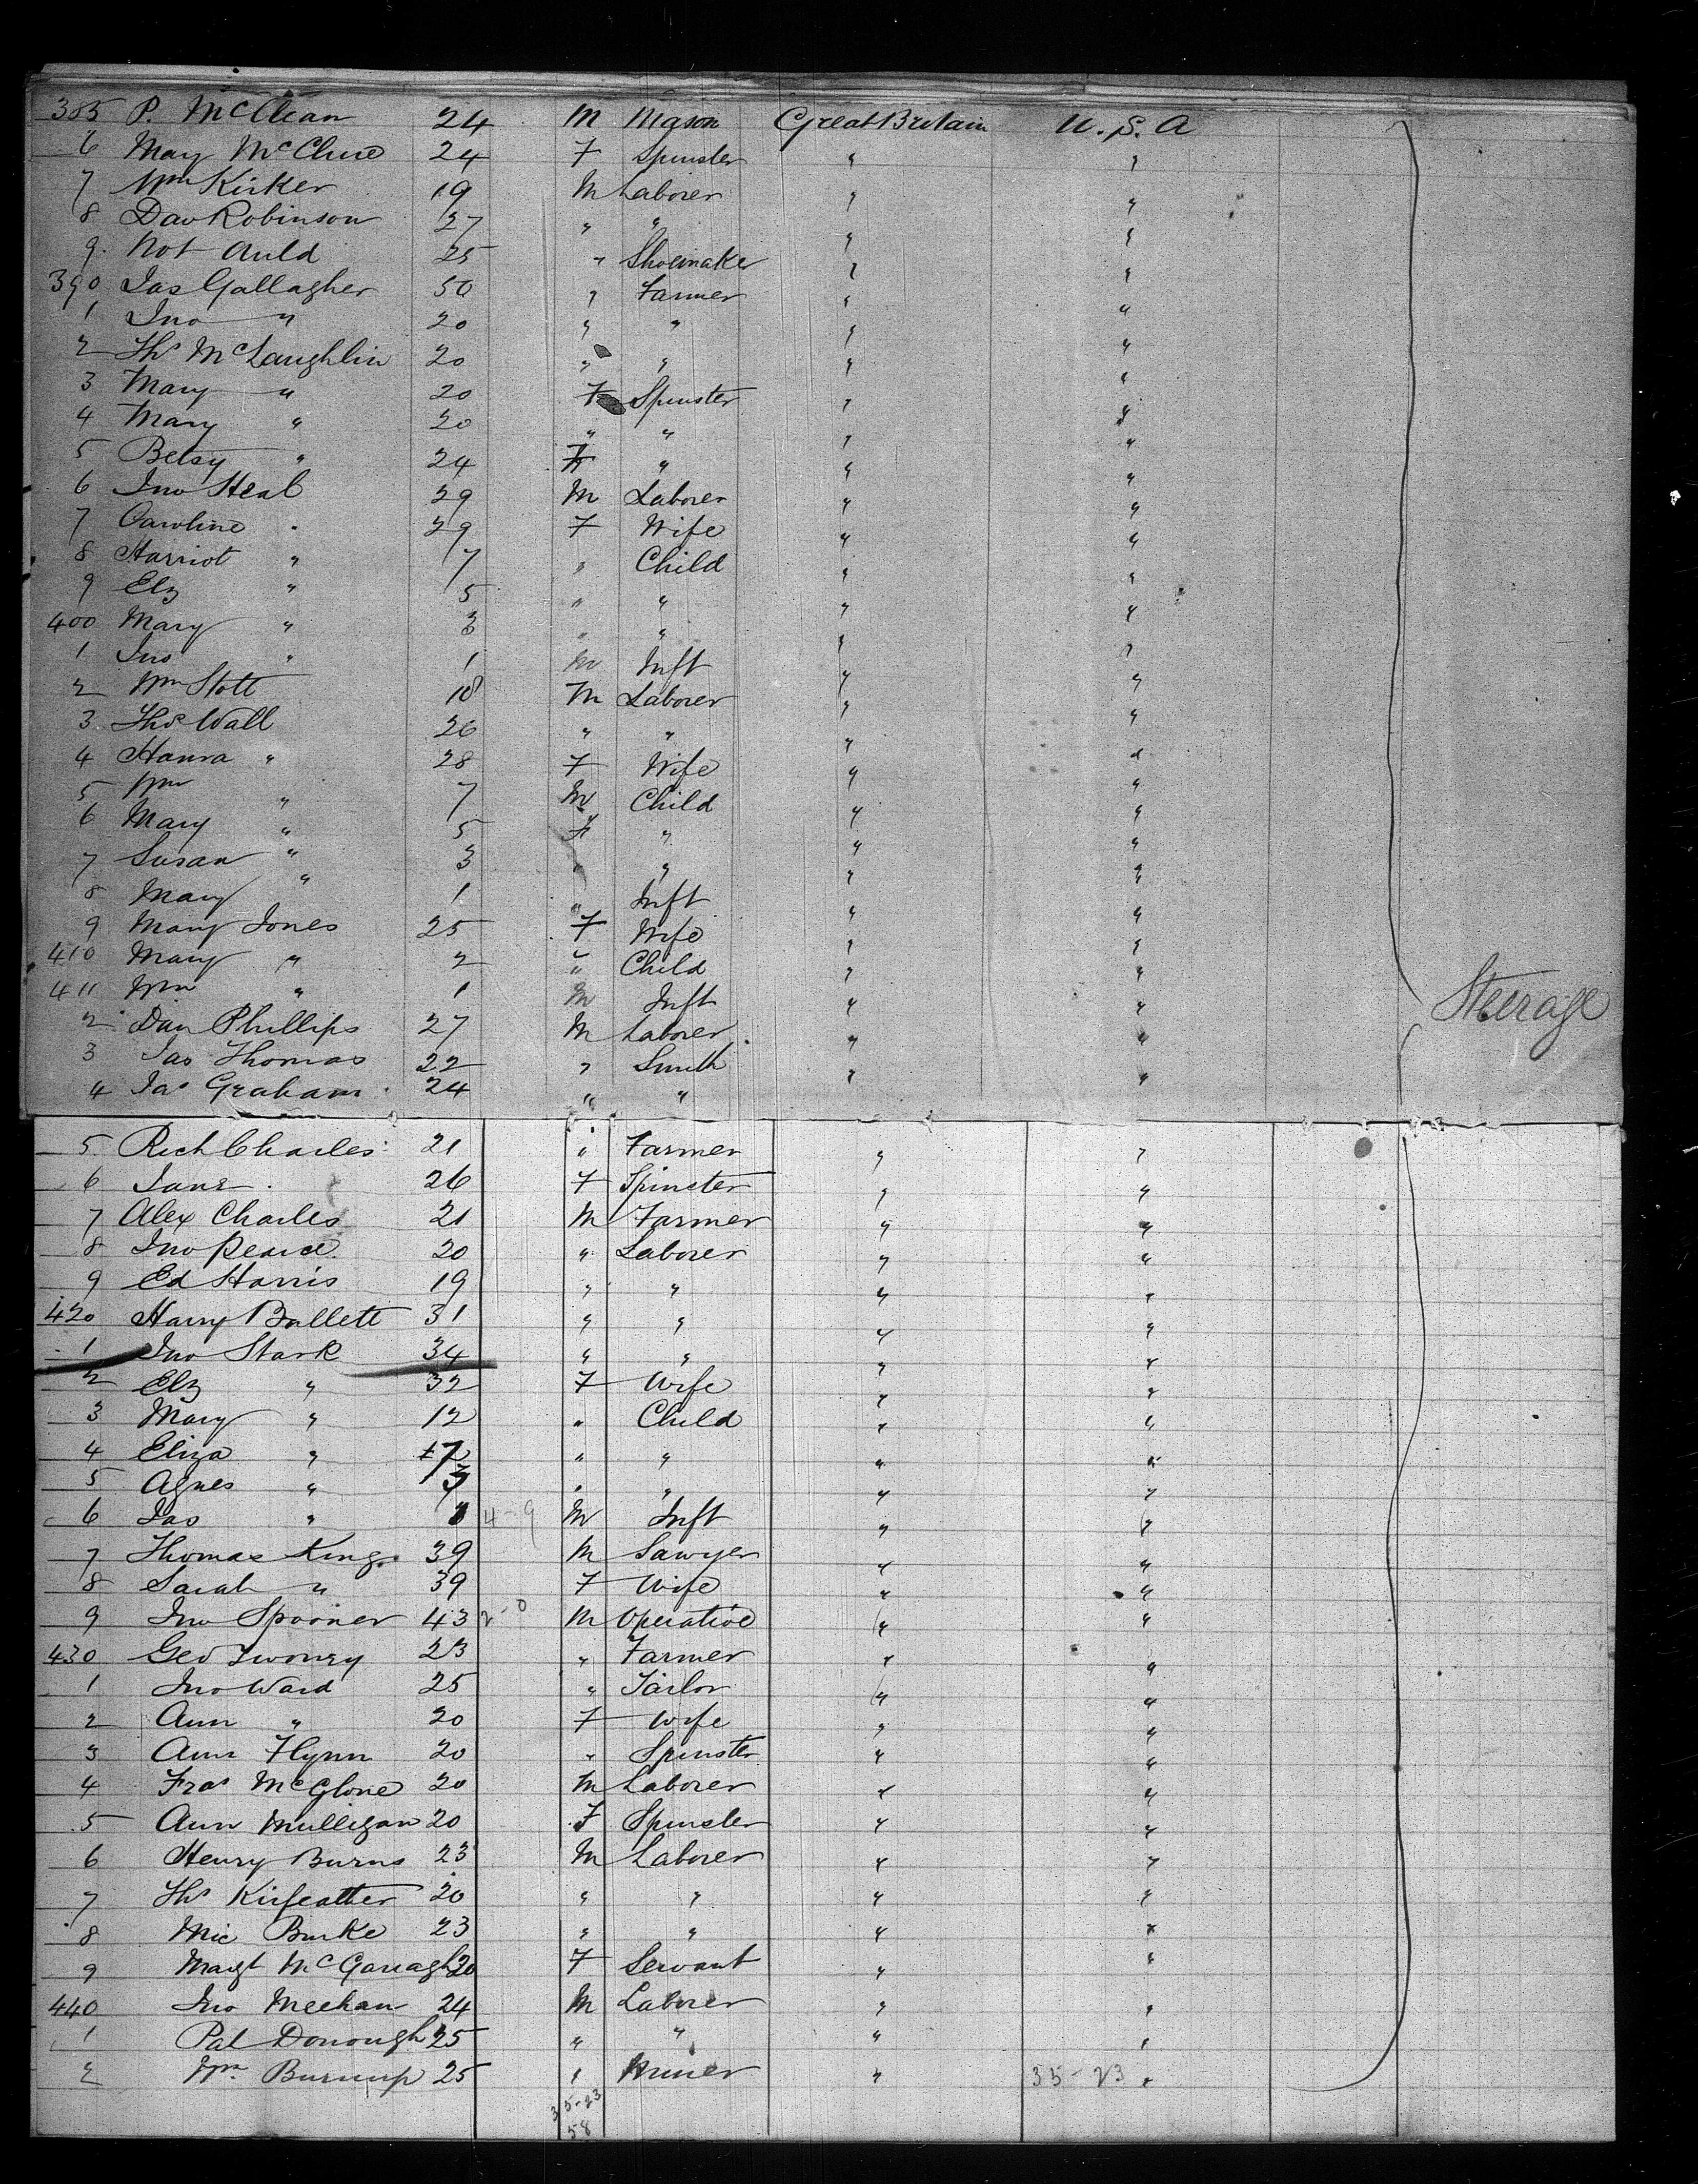 385 P. McClean 24 M Mason Great Britain U.S.A
6 May McClure 24 F Spinster " "
7 Wm Kirker 19 M Laborer " "
8 Dav Robinson 27 " " " "
9 Auld 25 " Shoemaker " "
390 Jas Gallagher 50 " Farmer " "
1 Jno " 20 " " " "
2 Ths McLaughlin 20 " " " "
3 Mary " 20 F Spinster " "
4 Mary " 20 " " " "
5 Betsy " 24 F " " "
6 Jno Heal 29 M Laborer " "
7 Caroline " 29 F Wife " "
8 Harriot " 7 " Child " "
9 Elz " 5 " " " "
400 Mary " 3 " " " "
1 Jno " 1 M Inft " "
2 Wm Stott 18 M Laborer " "
3 Thos Wall 26 " " " "
4 Hanra " 28 F Wife " "
5 Wm " 7 M Child " "
6 Mary " 5 F " " "
7 Susan " 3 " " " "
8 Mary " 1 " Inft " "
9 Mary Jones 25 F Wife " "
410 Mary " 2 " Child " "
411 Wm " 1 M Inft " "
Steerage
2 Dan Phillips 27 M Laborer " "
3 Jas Thomas 22 " Smith " "
4 Jas Graham 24 " " " "
5 Rich Charles 21 " Farmer " "
6 Jane 26 F Spinster " "
7 Alex Charles 21 M Farmer " "
8 Jno Pearce 20 " Laborer " "
9 Ed Harris 19 " " " "
420 Harry Ballett 31 " " " "
1 Jno Stark 34 " " " "
2 Elz " 32 F Wife " "
3 Mary " 12 " Child " "
4 Eliza " 7 " " " "
5 Agnes " 3 " " " "
6 Jas " 1 4-9 M Inft " "
7 Thomas King 39 M Sawyer " "
8 Sarah " 39 F Wife " "
9 Jno Spooner 43 2-0 M Operative " "
430 Geo Twomey 23 " Farmer " "
1 Jno Ward 25 " Tailor " "
2 Ann " 20 F Wife " "
3 Ann Flynn 20 " Spinster " "
4 Fras McGlone 20 M Laborer " "
5 Ann Mulligan 20 F Spinster " "
6 Henry Burns 23 M Laborer " "
7 Ths Kirfeather 20 " " " "
8 Mic Burke 23 " " " "
9 Margt McGarragh 20 F Servant " "
440 Jno Meehan 24 M Laborer " "
1 Pat Donough 25 " " " "
2 Wm Burnup 25 " Miner " 35-23 "
35-23
58